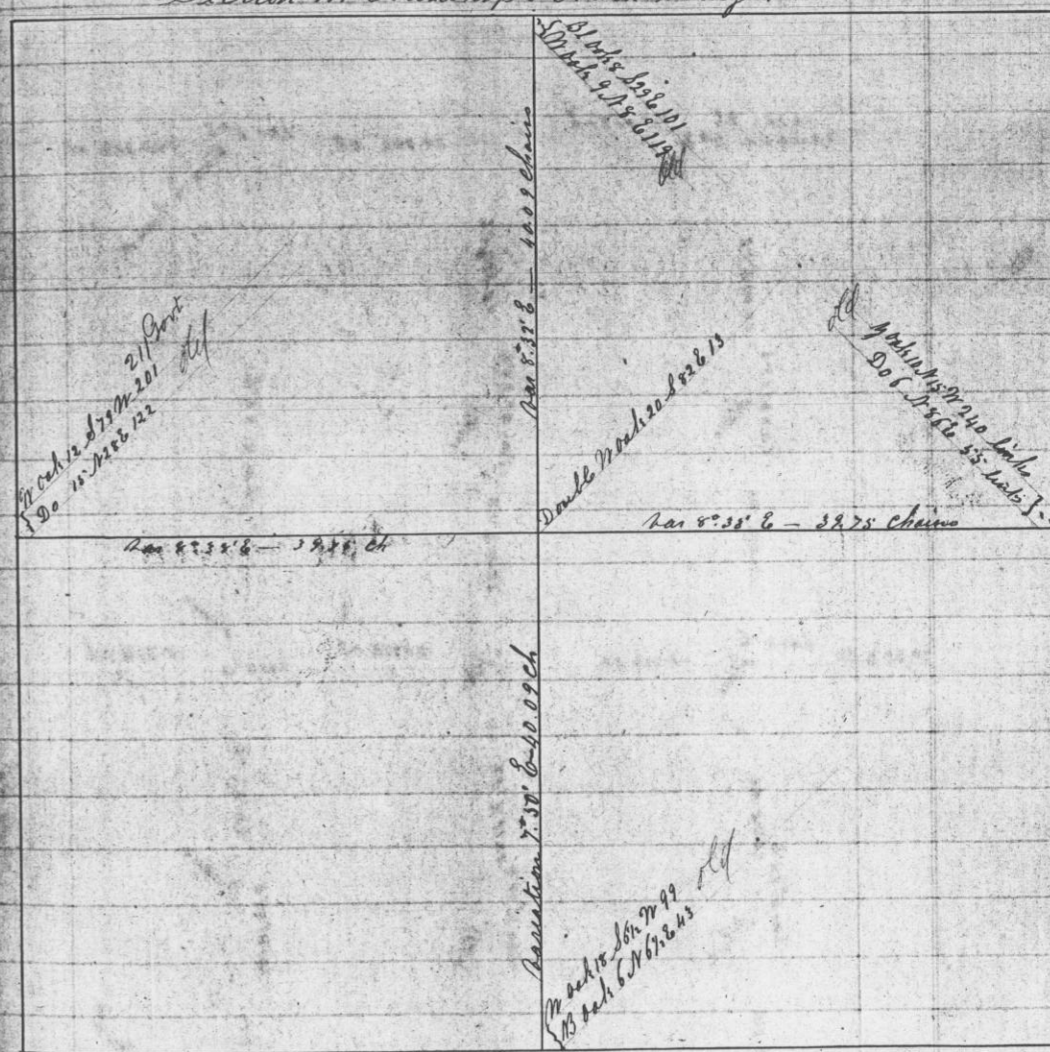 Bl oak 8 S29E 101
W oak 9 N8E 119
old
var 8°32' E — 40.09 chains
21 Govt
W oak 12 S79W 201 old
Do 15 N28E 122
Double W oak 20 S82E 13
old
oak 12 N15W 240 links
Do 6 N86E 55 links
var 8°38' E — ch
var 8°38' E — 39.75 chains
variation 7°50' E — 40.09 ch
old
W oak 18 W 99
B oak 6 N67E 43